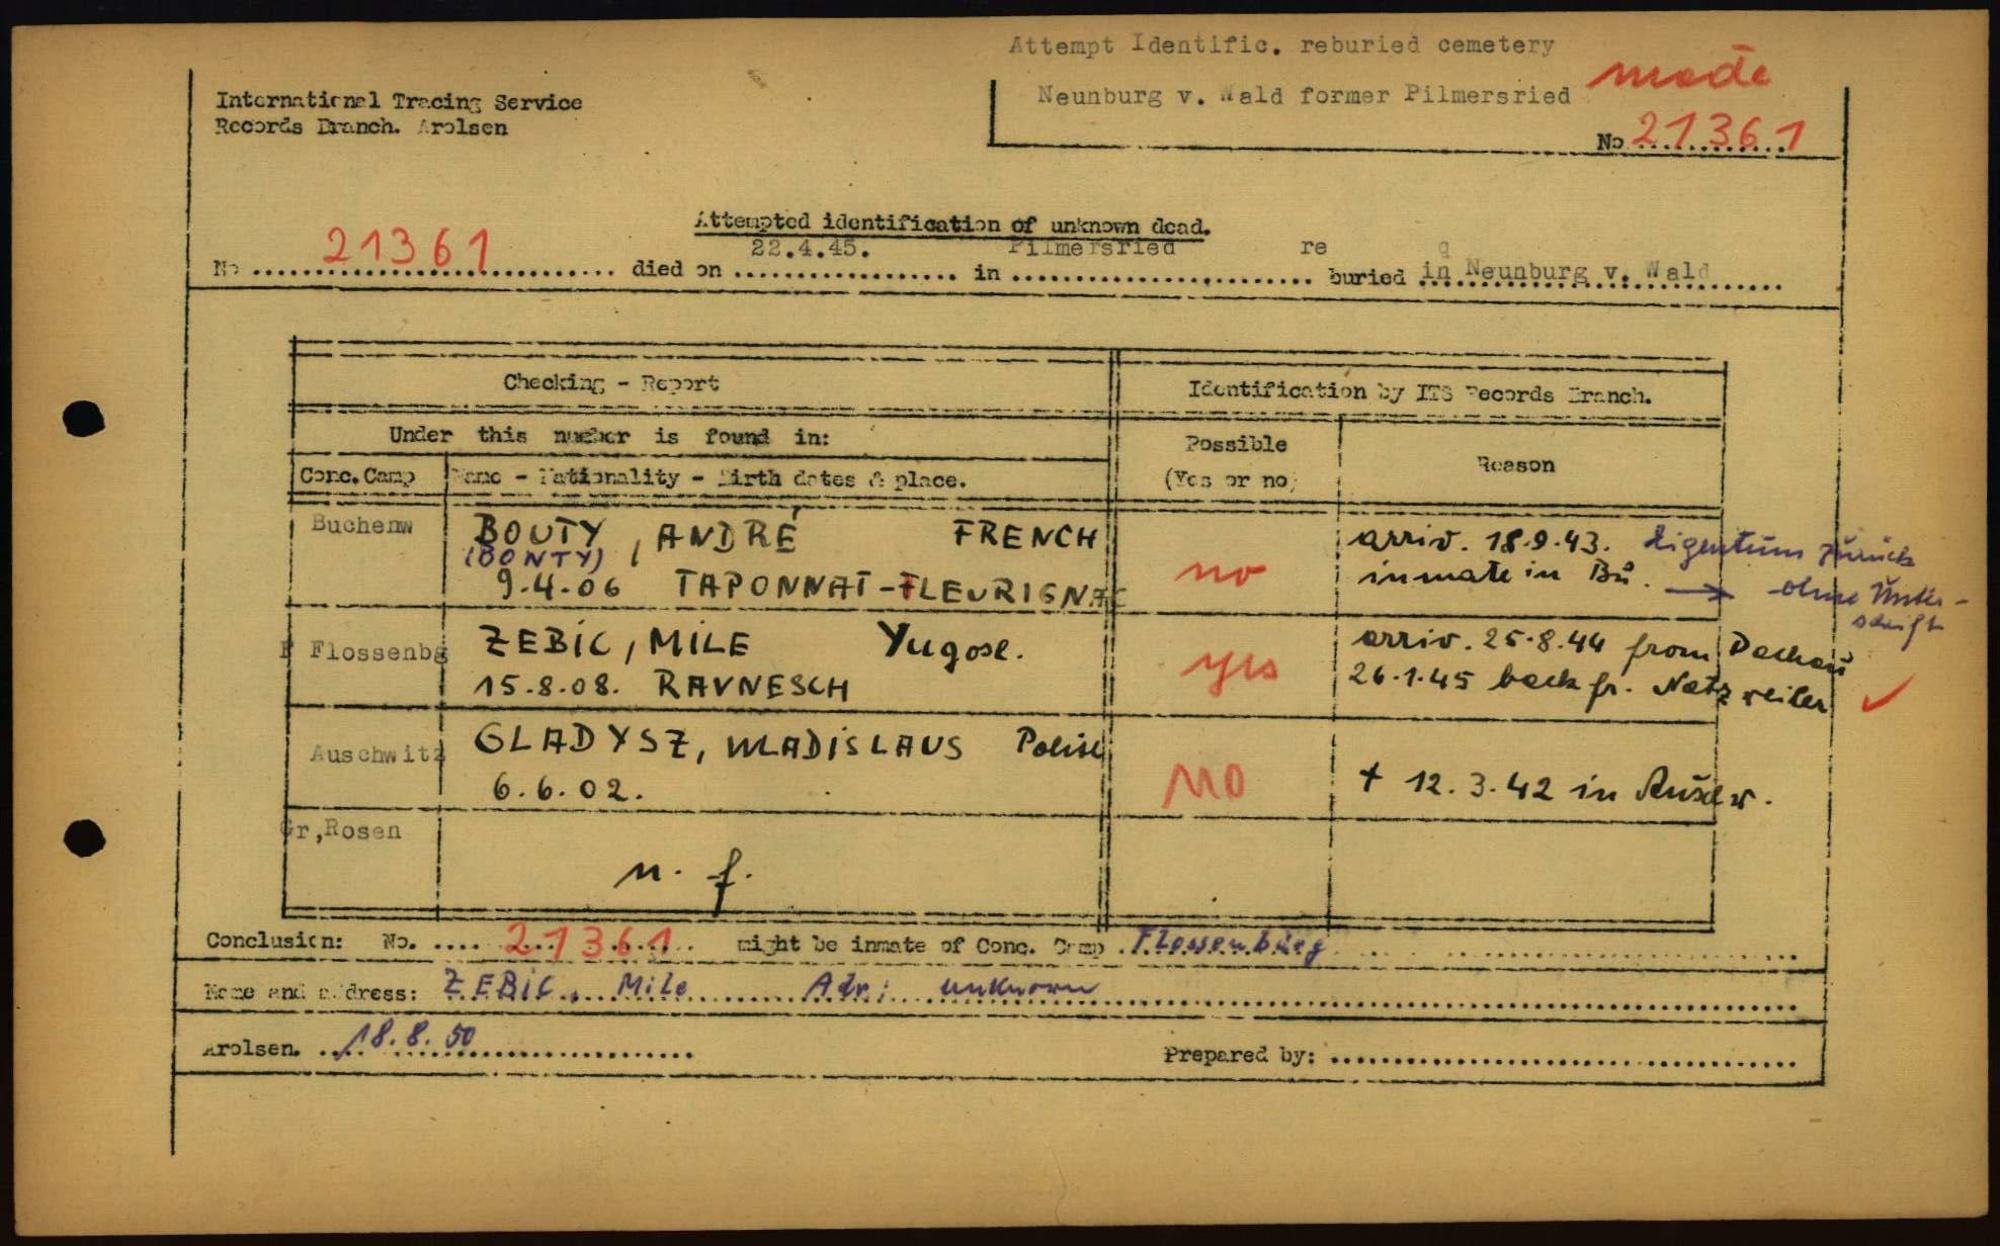 Attempt Identific. reburied cemetery
Neunburg v. Wald former Pilmersried made
No 21361
International Tracing Service
Records Branch. Arolsen
Attempted identification of unknown dead.
No 21361 died on 22.4.45. in Pilmersried re buried in Neunburg v. Wald
Checking - Report
Identification by ITS Records Branch.
Under this number is found in:
Possible
(Yes or no)
Reason
Conc. Camp Name - Nationality - Birth dates & place.
Buchenw BOUTY, ANDRÉ FRENCH
(BONTY)
9.4.06 TAPONNAT-FLEURIGNAC
no
arriv. 18.9.43. Eigentum zurück
inmate in Bu. → ohne Unter-
schrift
F Flossenbg ZEBIC, MILE Yugosl.
15.8.08. RAVNESCH
yes
arriv. 25.8.44 from Dachau
26.1.45 back fr. Natzweiler ✓
Auschwitz GLADYSZ, WLADISLAUS Polish
6.6.02.
NO
+ 12.3.42 in Auschw.
Gr,Rosen
n. f.
Conclusion: No. 21361 might be inmate of Conc. Camp Flossenbürg
Name and address: ZEBIC, Mile Adr: unknown
Arolsen. 18.8.50
Prepared by: